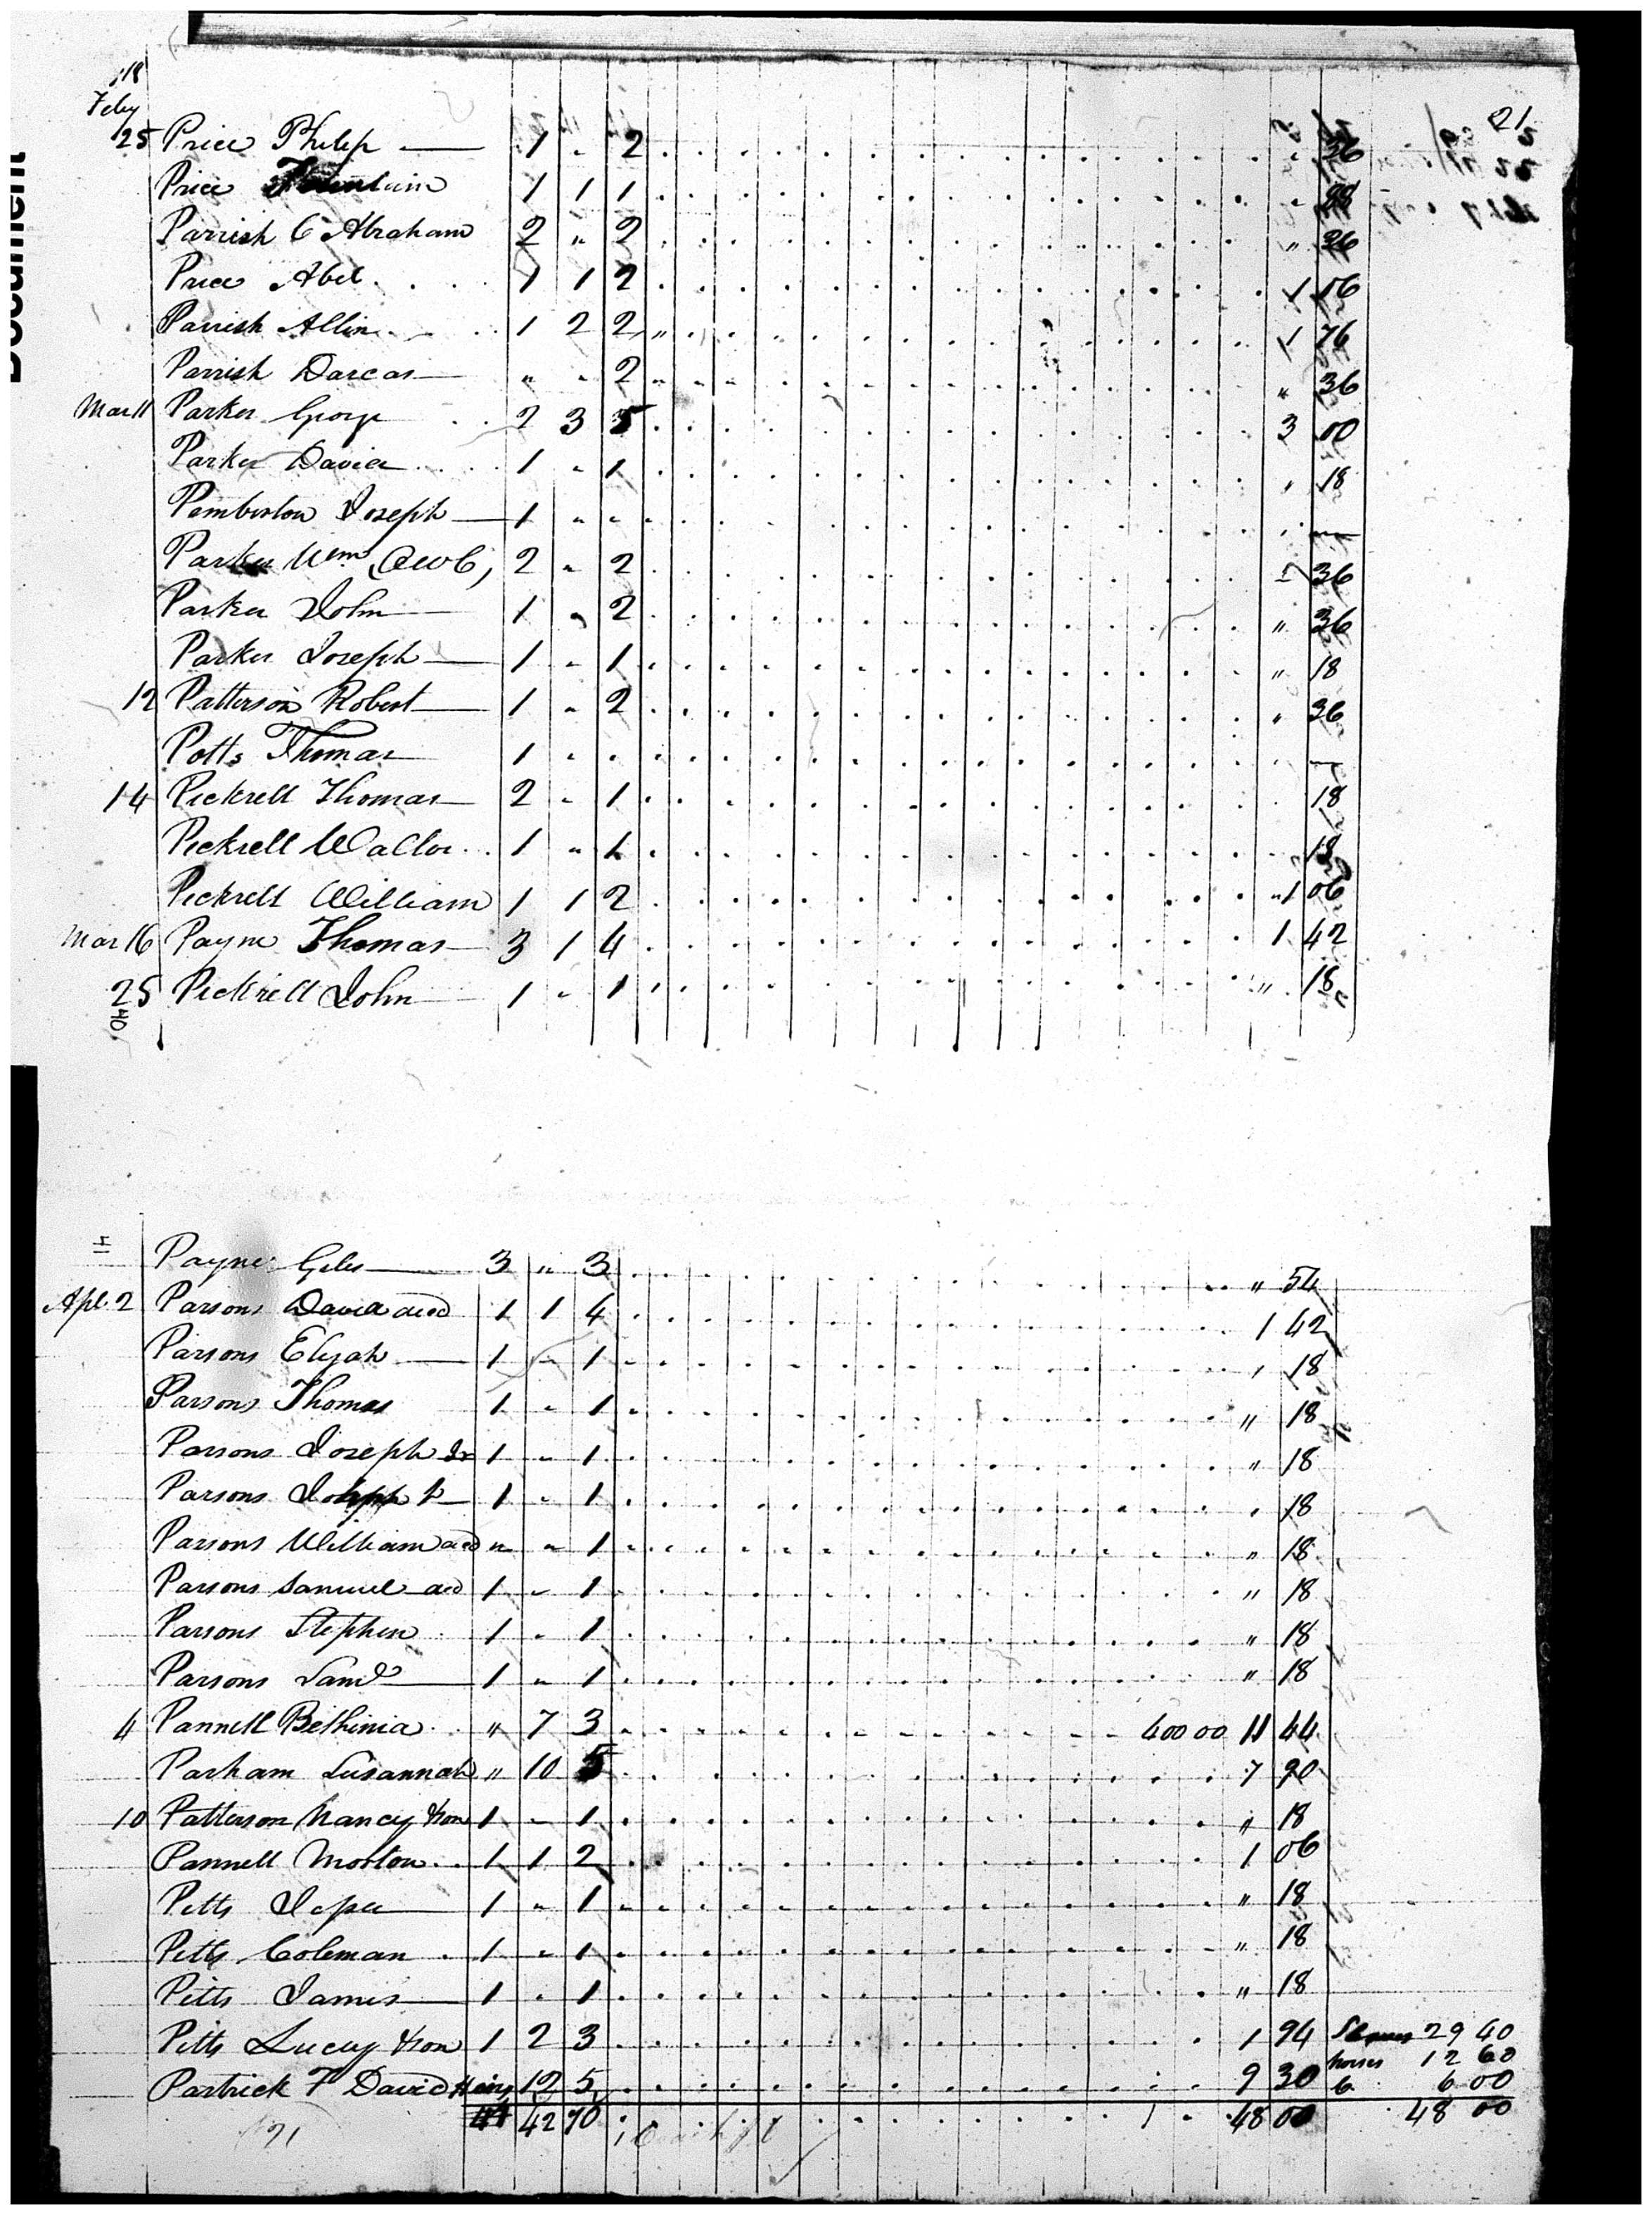 Document
18
Feby
21
25 Price Philip — 1 " 2 " 36
Price 1 1 1 " 88
Parrish C Abraham 2 " 2 " 36
Price Abel 1 1 2 1 06
Parrish Allin 1 2 2 " 1 76
Parrish Darcas — " " 2 " 36
Mar 11 Parker George 2 3 5 3 00
Parker David 1 " 1 " 18
Pemberton Joseph — 1 " " " —
Parker Wm (CWC) 2 " 2 " 36
Parker John — 1 " 2 " 36
Parker Joseph — 1 " 1 " 18
12 Patterson Robert — 1 " 2 " 36
Potts Thomas 1 " —
14 Pickrell Thomas — 2 " 1 18
Pickrell Waller 1 " 1 18
Pickrell William 1 1 2 " 1 06
Mar 16 Payne Thomas — 3 1 4 1 42
25 Pickrell John — 1 " 1 " 18
40
41
Payne Giles — 3 " 3 " 54
Apl. 2 Parsons David aced 1 1 4 1 42
Parsons Elijah — 1 " 1 " 18
Parsons Thomas 1 " 1 " 18
Parsons Joseph Jr 1 " 1 " 18
Parsons Joseph — 1 " 1 " 18
Parsons William aced " " 1 " 18
Parsons Samuel aced 1 " 1 " 18
Parsons Stephen 1 " 1 " 18
Parsons Saml — 1 " 1 " 18
4 Pannell Bethinia " 7 3 400 00 11 44
Parham Susannah " 10 5 7 90
10 Patterson Nancy & son 1 " 1 " 18
Pannell Morton 1 1 2 1 06
Pitts Jesse 1 " 1 " 18
Pitts Coleman 1 " 1 " 18
Pitts James — 1 " 1 " 18
Pitts Lucy & son 1 2 3 1 94 Slaves 29 40
Partrick F David 12 5 9 30 horses 12 60
6 6 00
42 70 48 00 48 00
21